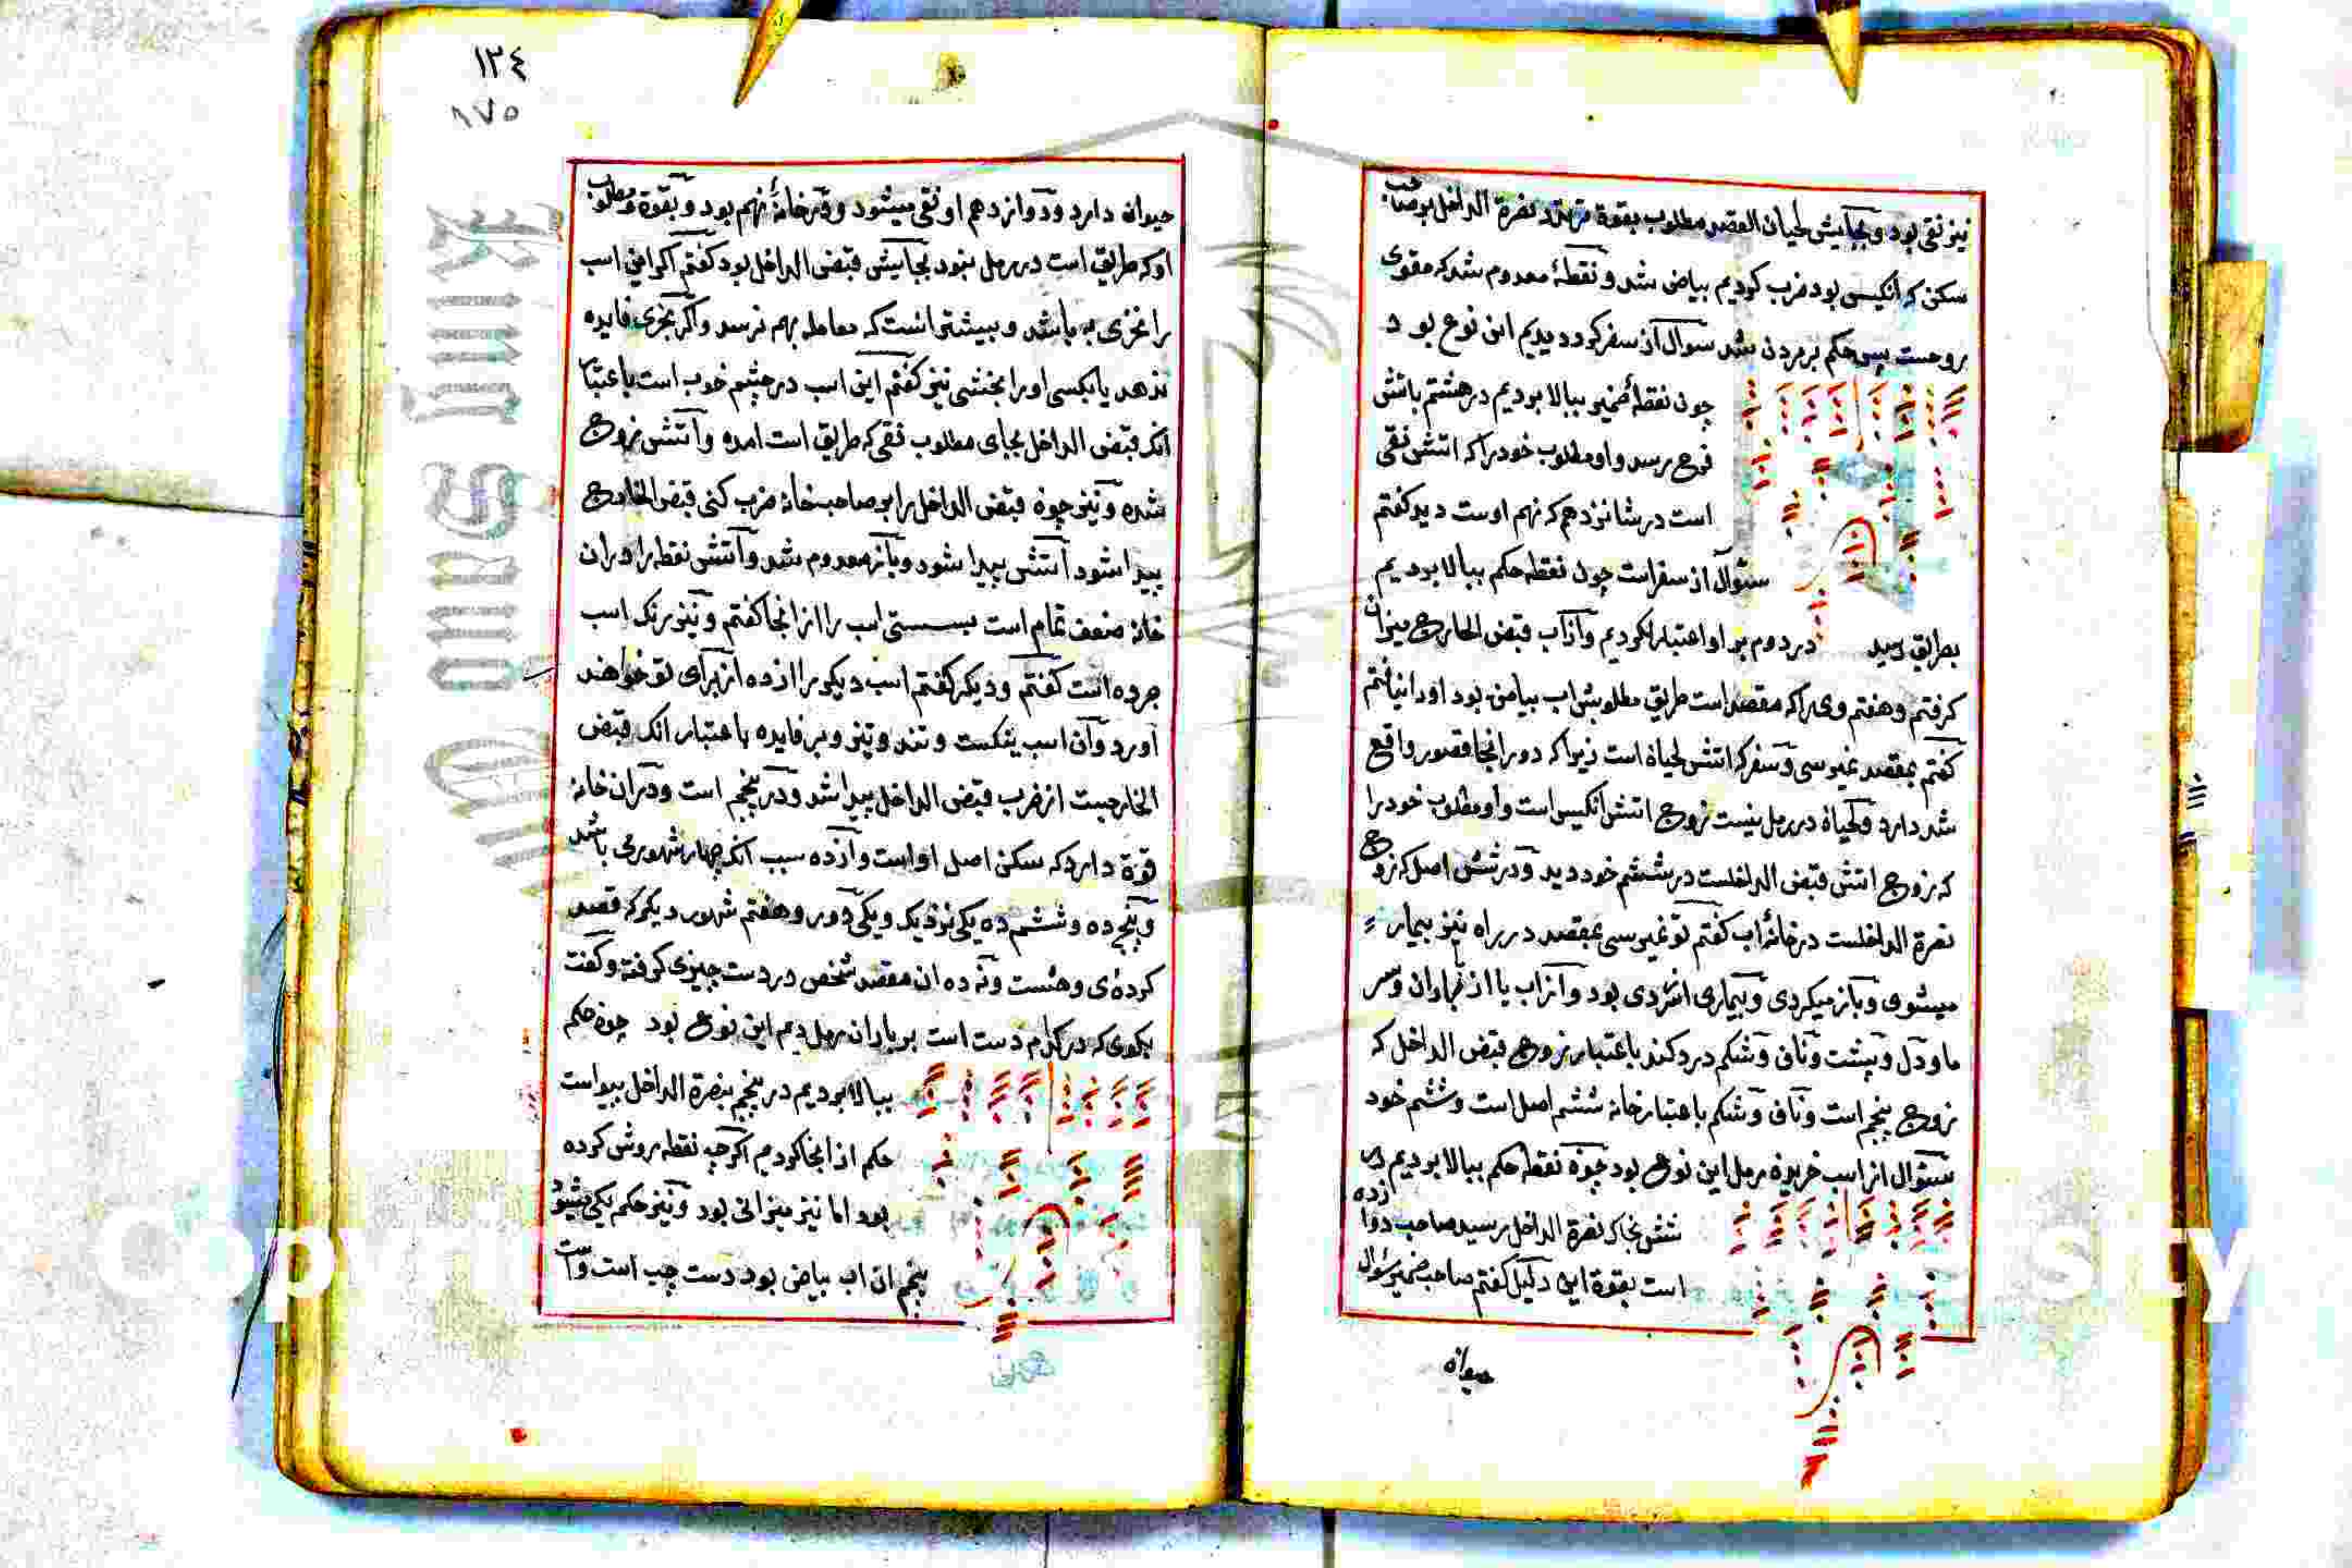 نیز نقی بود و بجایش لحیان القصد مطلوب بقوة نصرة الداخل بوصاحب
سکن که انکیس بود ضرب کردیم بیاض شد و نقطهٔ معدوم شد که مقوی
روحست پس حکم بر مردن شد سوال از سفر کرد دیدیم این نوع بود
چون نقطهٔ ضمیر ببالا بردیم در هشتم باتش
فرح رسد و او مطلوب خود را که اتش نقی
است در شانزدهم که نهم اوست دید کفتم
سئوال از سفر است چون نقطه حکم ببالا بردیم
بطریق رسید در دوم بر او اعتبار نکردیم و از آب قبض الخارج میزان
کرفتم و هفتم وی را که مقصد است طریق مطلوبش اب بیاض بود او را نیافتم
کفتم بمقصد نمیرسی و سفر که اتش لحیاة است زیرا که دو را نجا قصور واقع
شد دارد و لحیاة در رمل نیست زوج اتش انکیس است و او مطلوب خود را
که زوج اتش قبض الداخلست در ششم خود دید و در شش اصل که زوج
نصرة الداخلست در خانهٔ اب کفتم تو نمیرسی بمقصد در راه نیز بیمار
میشوی و باز میکردی و بیماری از سردی بود و از اب یا از باران و سر
ما و دل و پشت و ناف و شکم درد کند باعتبار زوج قبض الداخل که
زوج پنجم است و ناف و شکم باعتبار خانه ششم اصل است و ششم خود
سئوال از اسب خریده رمل این نوع بود چون نقطه حکم ببالا بردیم در
شش بخاک نصرة الداخل رسید صاحب دوازده
است بقوة این دلیل کفتم صاحب ضمیر سئوال
حیوان
١٣٤
٨٧٥
حیوان دارد و دوازدهم او نقی میشود و در خانهٔ نهم بود و بقوة و مطلوب
او که طریق است در رمل نبود بجایش قبض الداخل بود کفتم اکر این اسب
را نخری به باشد و بیشتر انست که معامله بهم نرسد و اکر بخری فایده
ندهد یا بکسی او را بخشی نیز کفتم این اسب در چشم خوب است باعتبار
انکه قبض الداخل بجای مطلوب نقی که طریق است امده و آتش زوج
شده و نیز چون قبض الداخل را بر صاحب خانه ضرب کنی قبض الخارج
پیدا شود آتش پیدا شود و باز معدوم شد و آتش نقطه را در ان
خانه ضعف تمام است بسستی اسب را از انجا کفتم و نیز رنک اسب
جرده است کفتم و دیکر کفتم اسب دیکر را از ده از برای تو خواهند
آورد و آن اسب نیکست و تند و تیز و پر فایده باعتبار انکه قبض
الخارجست از ضرب قبض الداخل پیدا شد و در پنجم است و در ان خانه
قوة دارد که سکن اصل او است و از ده سبب انکه چهار شهور می باشد
و پنج ده و ششم ده یکی نزدیک و یکی دور و هفتم شهور دیکر که قصد
کردهٔ وی و هشت و نه ده ان مقصد شخص در دست چیزی کرفته و کفت
بکوی که در کدام دست است بر یاران رمل دیدم این نوع بود چون حکم
ببالا بردیم در پنجم بنصرة الداخل پیواست
حکم از انجا کردیم اکرچه نقطه روش کرده
بود اما نیز میزانی بود و نیز حکم یکی میشود
پنجم ان اب بیاض بود دست چپ است و است